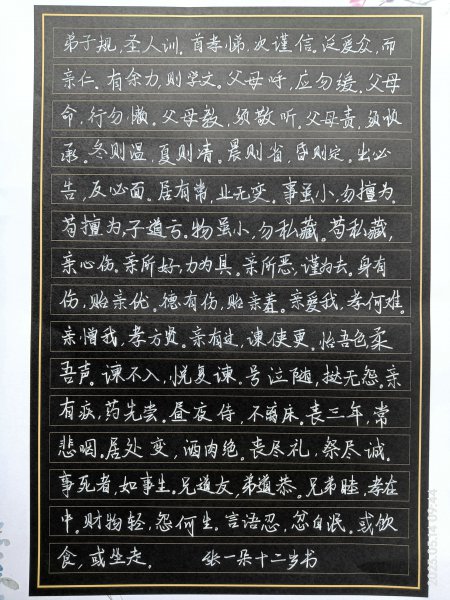 弟子规，圣人训。首孝悌，次谨信。泛爱众，而
亲仁。有余力，则学文。父母呼，应勿缓。父母
命，行勿懒。父母教，须敬听。父母责，须顺
承。冬则温，夏则凊。晨则省，昏则定。出必
告，反必面。居有常，业无变。事虽小，勿擅为。
苟擅为，子道亏。物虽小，勿私藏。苟私藏，
亲心伤。亲所好，力为具。亲所恶，谨为去。身有
伤，贻亲忧。德有伤，贻亲羞。亲爱我，孝何难。
亲憎我，孝方贤。亲有过，谏使更。怡吾色，柔
吾声。谏不入，悦复谏。号泣随，挞无怨。亲
有疾，药先尝。昼夜侍，不离床。丧三年，常
悲咽。居处变，酒肉绝。丧尽礼，祭尽诚。
事死者，如事生。兄道友，弟道恭。兄弟睦，孝在
中。财物轻，怨何生。言语忍，忿自泯。或饮
食，或坐走。 张一朵十二岁书
2023.05.14 09:44